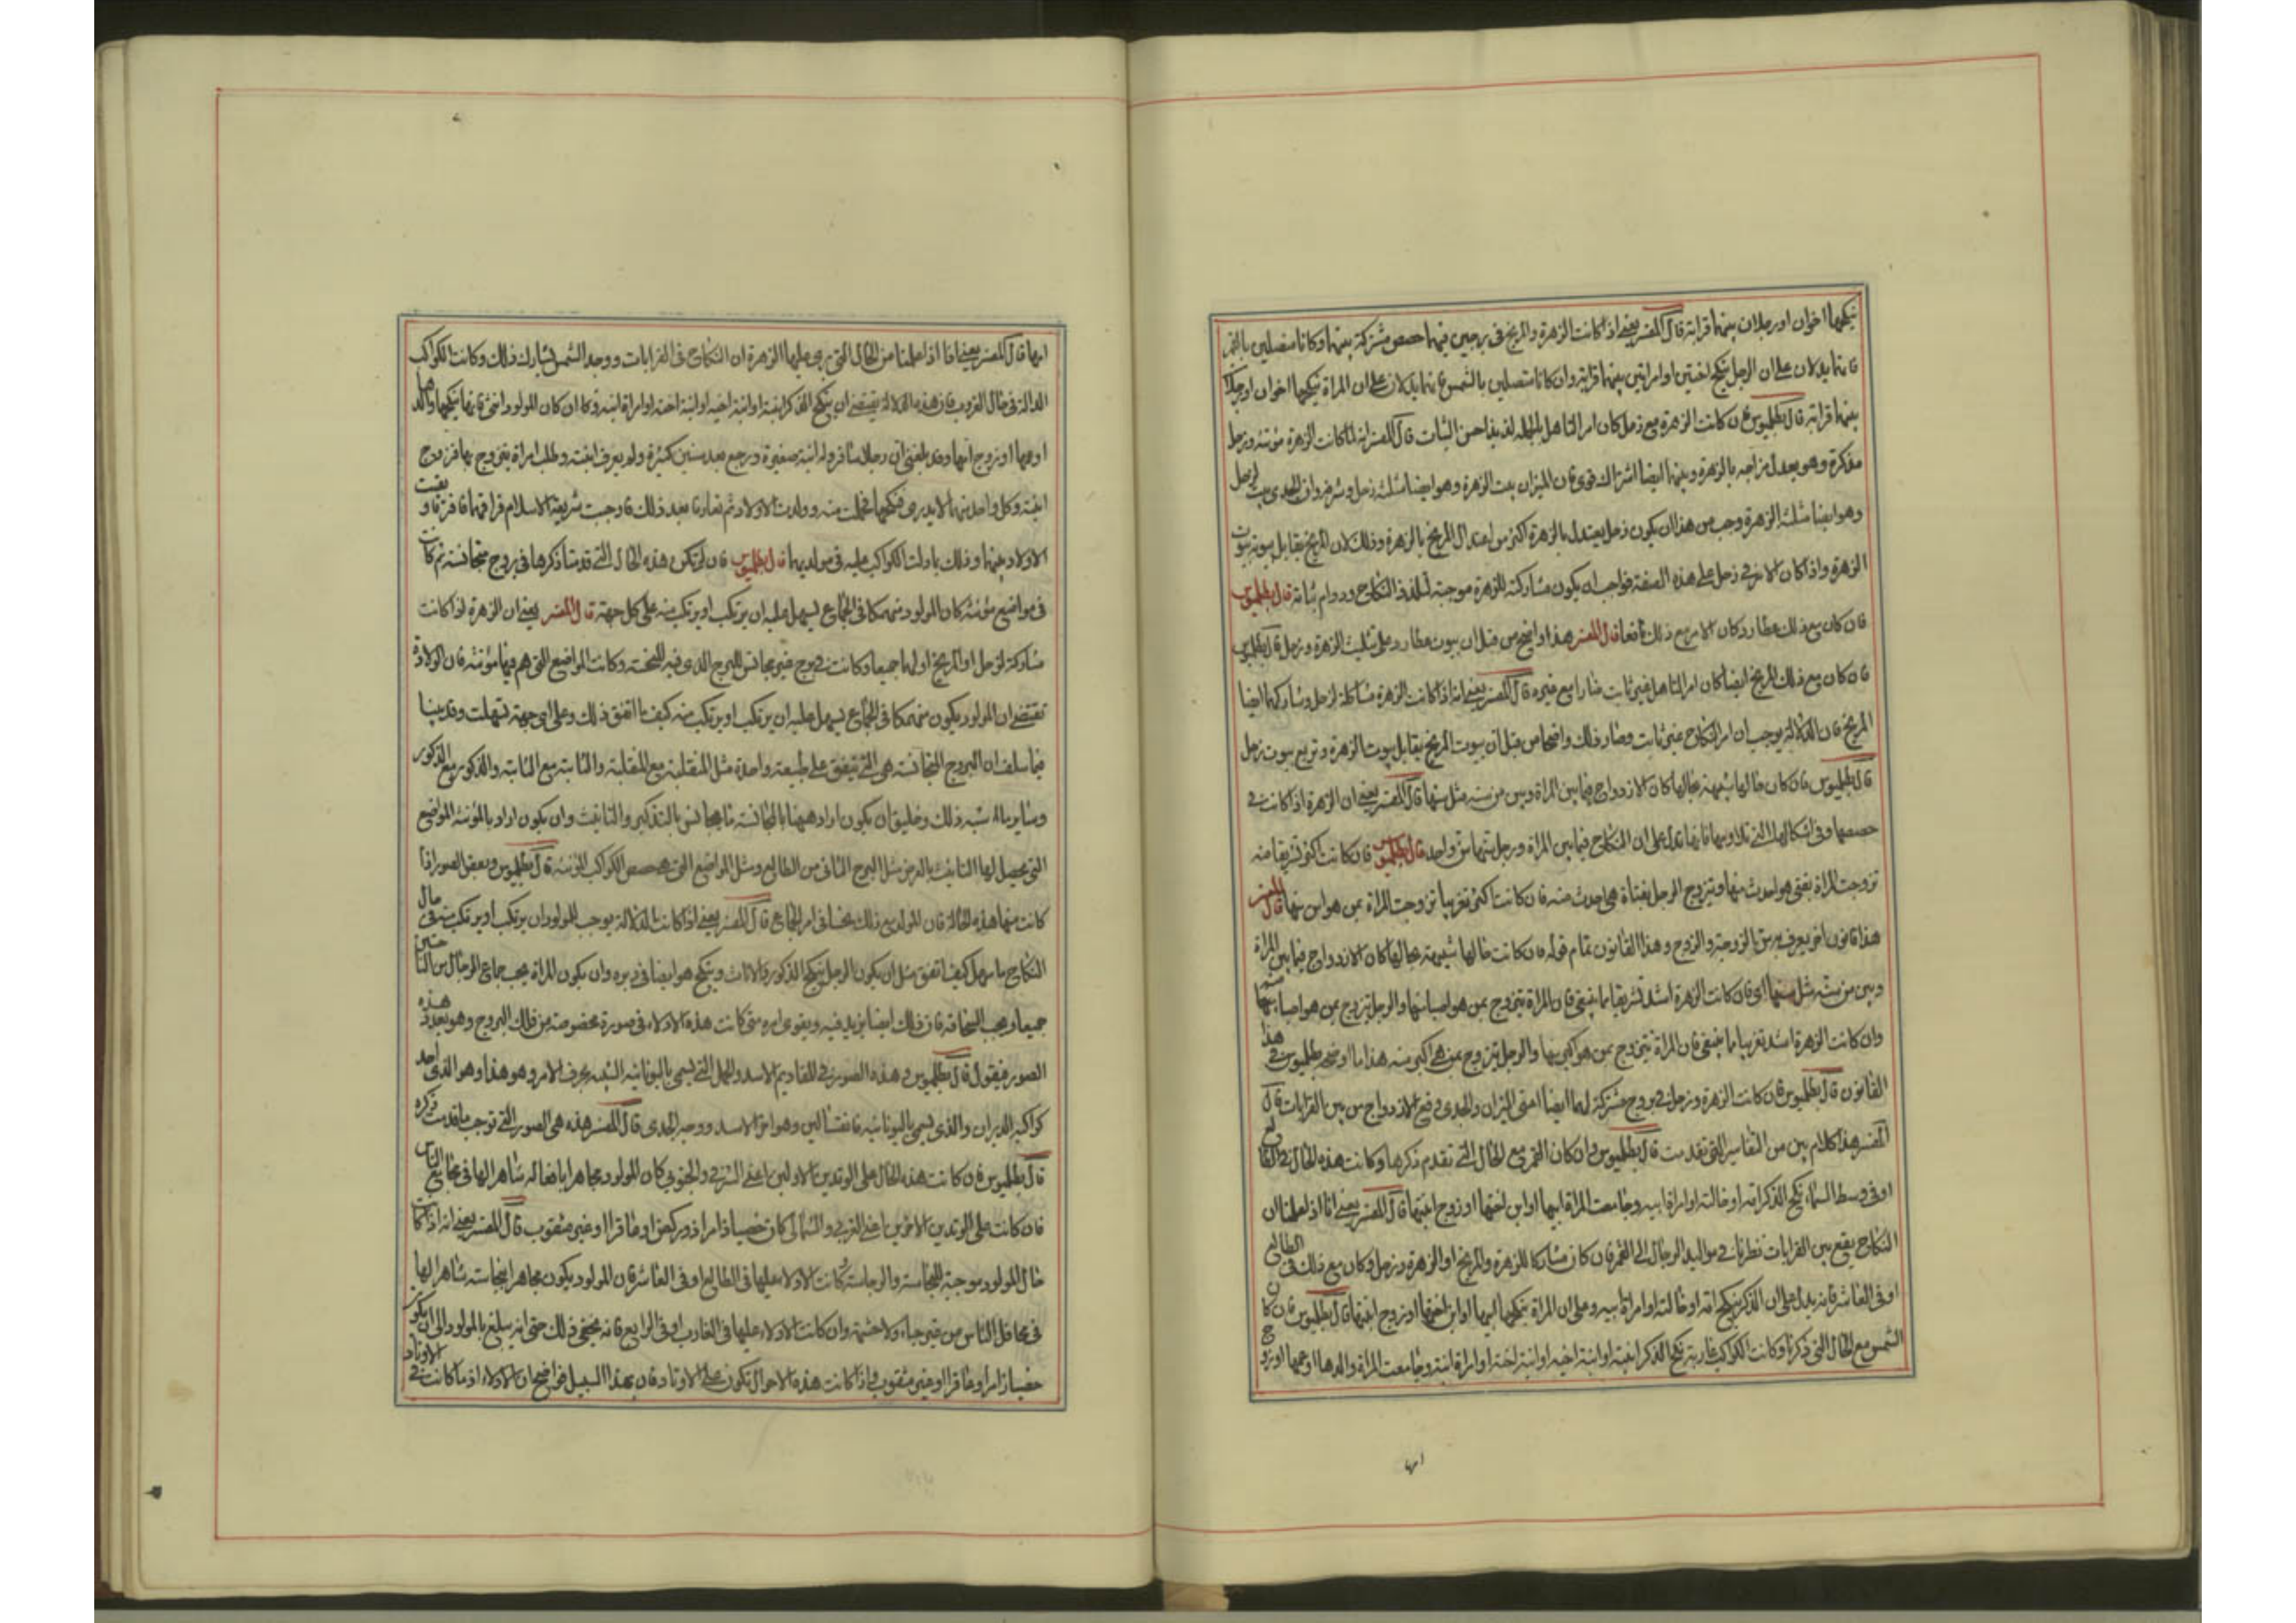 ينكحها اخوان او رجلان بينهما قرابة قال المفسر يعني اذا كانت الزهرة والمريخ في برجين فيهما حصص مشتركة بينهما وكانا متصلين بالقمر
فانهما يدلان على ان الرجل ينكح اختين او امراتين بينهما قرابة وان كانا متصلين بالشمس فانهما يدلان على ان المراة ينكحها اخوان او رجلان
بينهما قرابة قال بطلميوس فان كانت الزهرة مع زحل كان امر التاهل بالجملة لذيذا حسن الثبات قال المفسر انه لما كانت الزهرة مؤنثة وزحل
مذكرة وهو يعدل مزاجه بالزهرة وبينهما ايضا اشتراك قوي فان الميزان بيت الزهرة وهو ايضا مثلثة زحل وشرفه وان الجدي بيت لزحل
وهو ايضا مثلثة الزهرة وجب من هذا ان يكون زحل يعتدل بالزهرة اكثر من اعتدال المريخ بالزهرة وذلك لان المريخ يقابل بيوته بيوت
الزهرة واذا كان الامر في زحل على هذه الصفة فواجب ان يكون مشاركته للزهرة موجبة لتلذذ النكاح ودوام ثباته قال بطلميوس
فان كان مع ذلك عطارد كان الامر مع ذلك نافعا قال المفسر هذا واضح من قبل ان بيوت عطارد على تثليث الزهرة وزحل قال بطلميوس
فان كان مع ذلك المريخ ايضا كان امر التاهل غير ثابت ضارا مع غيره قال المفسر يعني انه اذا كانت الزهرة مشاكلة لزحل وشاركهما ايضا
المريخ فان الدلالة يوجب ان امر النكاح غير ثابت وضار ذلك واضحا من قبل ان بيوت المريخ يقابل بيوت الزهرة وتربع بيوت زحل
قال بطلميوس فان كان حالها شبيهة بحالها كان الازدواج فيما بين المراة وبين من سنه مثل سنها قال المفسر يعني ان الزهرة اذا كانت في
حصصها وفي اشكالها التي تلاوبها فانها تدل على ان النكاح فيما بين المراة ورجل سنهما سن واحد قال بطلميوس فان كانت اكثر تشريقا منه
تزوجت المراة بفتى هو احدث منها وتزوج الرجل بفتاة هي احدث منه فان كانت اكثر تغريبا تزوجت المراة بمن هو اسن منها قال المفسر
هذا قانون اخر يعرف به سن الزوجة والزوج وهذا القانون تمام قوله فان كانت حالها شبيهة بحالها كان الازدواج فيما بين المراة
وبين من سنه مثل سنها اي فان كانت الزهرة اشد تشريقا مما ينبغي فان المراة يتزوج بمن هو اصبا منها والرجل يتزوج بمن هو اصبا منه
وان كانت الزهرة اشد تغريبا مما ينبغي فان المراة يتزوج بمن هو اكبر منها والرجل يتزوج بمن هي اكبر منه هذا ما اوضحه بطلميوس في هذا
القانون قال بطلميوس فان كانت الزهرة وزحل في بروج مشتركة لهما ايضا اعني الميزان والجدي وقع الازدواج من بين القرابات قال
المفسر هذا كلام بين من التفاسير التي تقدمت قال بطلميوس وان كان القمر مع الحال التي تقدم ذكرها وكانت هذه الحال في الطالع
او في وسط السماء نكح الذكر امه او خالته او امراة ابيه وجامعت المراة ابنها او ابن اختها او زوج ابنتها قال المفسر يعني انا اذا علمنا ان
النكاح يقع بين القرابات نظرنا في مواليد الرجال الى القمر فان كان مشاركا للزهرة والمريخ او الزهرة وزحل وكان مع ذلك في الطالع
او في العاشر فانه يدل على ان الذكر ينكح امه او خالته او امراة ابيه وعلى ان المراة ينكحها ابنها او ابن اختها او زوج ابنتها قال بطلميوس فان كان
الشمس مع الحال التي ذكرنا وكانت الكواكب غاربة نكح الذكر ابنته او ابنة اخيه او ابنة اخته او امراة ابنه وجامعت المراة والدها او عمها او زوج
امها
امها قال المفسر يعني انا اذا علمنا من الحال التي يرى عليها الزهرة ان النكاح في القرابات ووجد الشمس تشارك ذلك وكانت الكواكب
الدالة في حال الغروب فان هذه الدلالة يقتضي ان ينكح الذكر ابنته او ابنة اخيه او ابنة اخته او امراة ابنه وكان ان كان المولود انثى فانها ينكحها والدها
او عمها او زوج امها وقد بلغني ان رجلا سافر وله ابنة صغيرة ورجع بعد سنين كثيرة ولم يعرف ابنته وطلب امراة يتزوج بها فزوج
ابنته وكل واحد منهما لا يدري فنكحها فحملت منه وولدت الاولاد ثم تعارفا بعد ذلك فاوجبت شريعة الاسلام فراقهما فافترقا وبقيت
الاولاد بينهما وذلك بما دلت الكواكب عليه في مولديهما قال بطلميوس فان لم تكن هذه الحال التي قدمنا ذكرها في بروج متجانسة ثم كانت
في مواضع مؤنثة كان المولود منهمكا في الجماع يسهل عليه ان يرتكب او يرتكب منه على كل جهة قال المفسر يعني ان الزهرة اذا كانت
مشاركة لزحل او المريخ او لهما جميعا وكانت في برج غير مجانس للبرج الذي فيه للنحسة وكانت المواضع التي هم فيها مؤنثة فان الولادة
تقتضي ان المولود يكون منهمكا في الجماع يسهل عليه ان يرتكب او يرتكب منه كيف ما اتفق ذلك وعلى اي جهة تسهلت وقد بينا
فيما سلف ان البروج المتجانسة هي التي تتفق على طبيعة واحدة مثل المنقلبة مع المنقلبة والثابتة مع الثابتة والذكور مع الذكور
وساير ما اشبه ذلك وخليق ان يكون اراد ههنا بالمجانسة ما يجانس بالتذكير والتانيث وان يكون اراد بالمؤنثة المواضع
التي يحصل لها التانيث بالعرض مثل البرج الثاني من الطالع ومثل المواضع التي هي حصص الكواكب المؤنثة قال بطلميوس وبعض الصور اذا
كانت منها هذه الحالة فان المولود مع ذلك نحسا في امر الجماع قال المفسر يعني اذا كانت الدلالة يوجب للمولود ان يرتكب او يرتكب منه في حال
النكاح ما سهل كيف اتفق مثل ان يكون الرجل ينكح الذكور والاناث وينكح هو ايضا في دبره وان يكون المراة يحب جماع الرجال من الناحيتين
جميعا ويحب السحاقة فان ذلك ايضا يزيد فيه ويقوى امره متى كانت هذه الادلاء في صورة مخصوصة من فلك البروج وهو يعدد هذه
الصور فيقول قال بطلميوس وهذه الصور في المقاديم الاسد والحمل التي يسمى باليونانية الشبه بحرف الامر وهو هذا وهو الذي احد
كواكبه الدبران والذي يسمى باليونانية وهو اخر الاسد ووجه الجدي قال المفسر هذه هي الصور التي توجب ما قدمت ذكره
قال بطلميوس فان كانت هذه الحال على الوتدين الاولين اعني الشرقي والجنوبي كان المولود مجاهرا بافعاله شاهرا لها في مجامع الناس
فان كانت على الوتدين الاخرين اعني الغربي والشمالي كان خصيا زامرا او عاقرا او غير مثقوب قال المفسر يعني انه اذا كانت
حال المولود موجبة للنجاسة وكانت الادلاء عليها في الطالع او في العاشر فان المولود يكون مجاهرا بنجاسته شاهرا لها
في محافل الناس من غير حياء ولا حشمة وان كانت الادلاء عليها في الغارب او في الرابع فانه يخفي ذلك حتى انه يبلغ بالمولود الى ان يكون
خصيا زامرا او عاقرا او غير مثقوب فاذا كانت هذه الاحوال تكون على الاوتاد فان بهذا السبيل فواضح ان الادلاء اذا ما كانت في الاوتاد